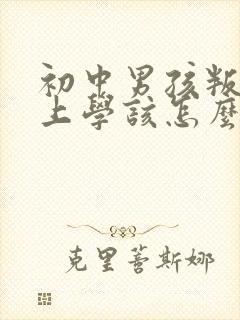 初中男孩叛
上學該怎麼
克里蒈斯娜